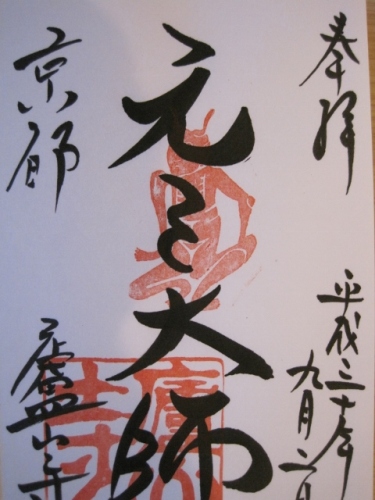 奉拝
平成三十年
九月二
元三大師
京都
廬山寺